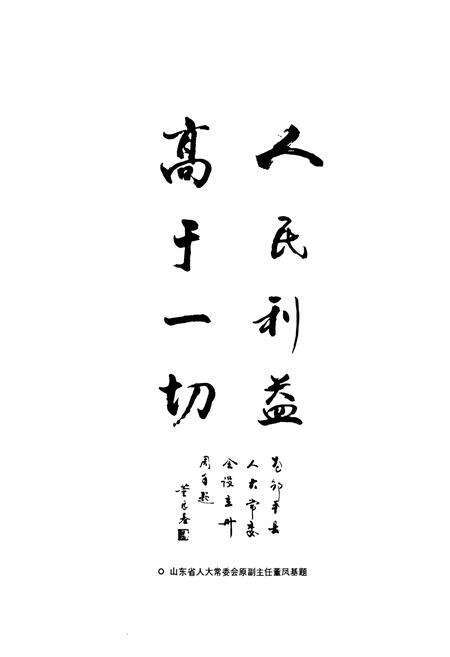 人民利益
高于一切
为邹平县
人大常委
会设立卅
周年题
董凤基
山东省人大常委会原副主任董凤基题